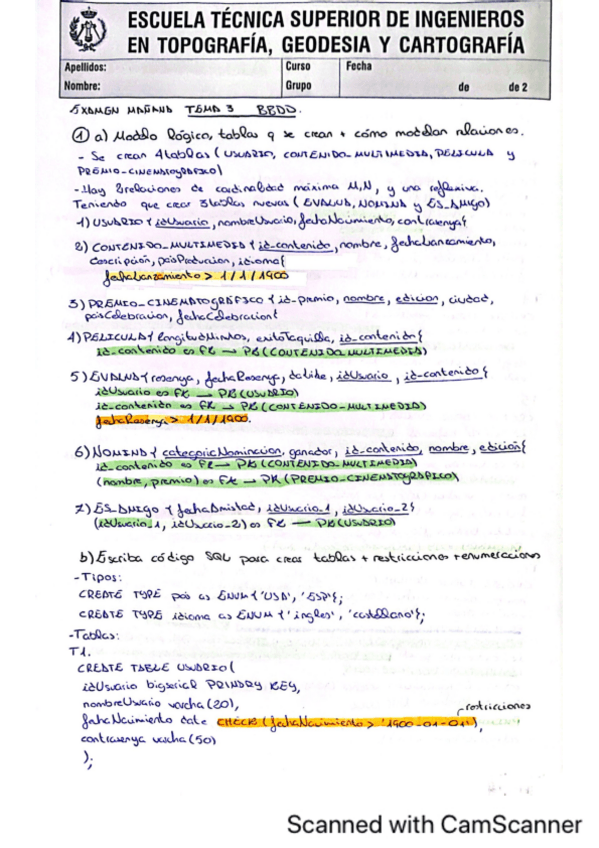 ESCUELA TÉCNICA SUPERIOR DE INGENIEROS
EN TOPOGRAFÍA, GEODESIA Y CARTOGRAFÍA
Apellidos:
Nombre:
Curso
Grupo
Fecha
de de 2
EXAMEN MAÑANA TEMA 3 BBDD.
① a) Modelo lógico, tablas q se crean + cómo modelan relaciones.
- Se crean 4 tablas (USUARIO, CONTENIDO_MULTIMEDIA, PELICULA y
PREMIO-CINEMATOGRÁFICO)
- Hay 2 relaciones de cardinalidad máxima M,N, y una reflexiva.
Teniendo que crear 3 tablas nuevas (EVALUA, NOMINA y ES_AMIGO)
1) USUARIO { idUsuario, nombreUsuario, fechaNacimiento, contrasenya}
2) CONTENIDO_MULTIMEDIA { id-contenido, nombre, fechaLanzamiento,
descripción, paisProduccion, idioma}
fechaLanzamiento > 1/1/1900
3) PREMIO-CINEMATOGRÁFICO { id-premio, nombre, edicion, ciudad,
paisCelebracion, fechaCelebracion}
4) PELICULA { longitudMinutos, exitoTaquilla, id-contenido}
id-contenido es FK → PK (CONTENIDO_MULTIMEDIA)
5) EVALUA { resenya, fechaResenya, idUsuario, id-contenido}
idUsuario es FK → PK (USUARIO)
id-contenido es FK → PK (CONTENIDO-MULTIMEDIA)
fechaResenya > 1/1/1900.
6) NOMINA { categoriaNominacion, ganador, id-contenido, nombre, edición}
id-contenido es FK → PK (CONTENIDO MULTIMEDIA)
(nombre, premio) es FK → PK (PREMIO-CINEMATOGRÁFICO)
7) ES_AMIGO { fechaAmistad, idUsuario_1, idUsuario_2}
(idUsuario_1, idUsuario-2) es FK → PK (USUARIO)
b) Escriba código SQL para crear tablas + restricciones + enumeraciones
- Tipos:
CREATE TYPE pais as ENUM {'USA', 'ESP'};
CREATE TYPE idioma as ENUM {'ingles', 'castellano'};
-Tablas:
T1.
CREATE TABLE USUARIO (
idUsuario bigserial PRIMARY KEY,
nombreUsuario varcha (20),
restricciones
fechaNacimiento date CHECK (fechaNacimiento > '1900-01-01'),
contrasenya varcha (50)
);
Scanned with CamScanner